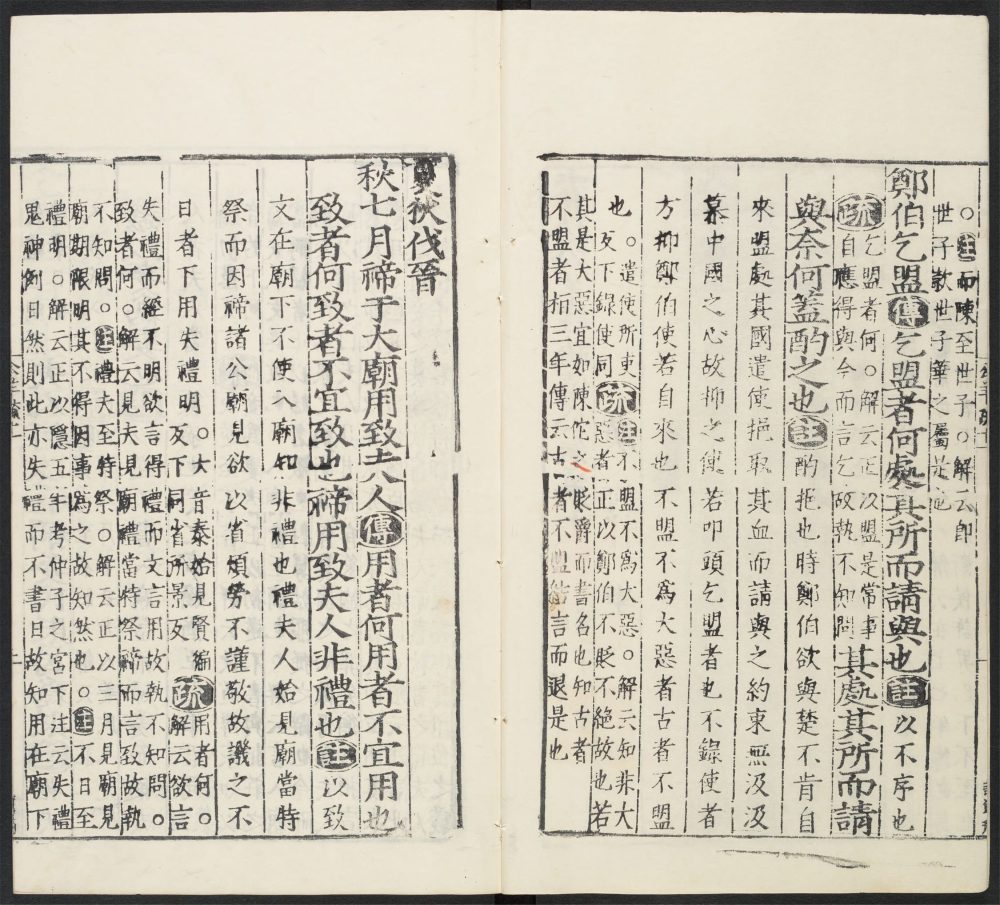 ○註而陳至世子○解云卽
世子款世子華之屬是也
鄭伯乞盟傳乞盟者何處其所而請與也註以不序也
疏乞盟者何○解云正以盟是常事
自應得與今而言乞故執不知問其處其所而請
與奈何蓋酌之也註酌挹也時鄭伯欲與楚不肯自
來盟處其國遣使挹取其血而請與之約束無汲汲
慕中國之心故抑之使若叩頭乞盟者也不錄使者
方抑鄭伯使若自來也不盟不為大惡者古者不盟
也○遣使所吏
反下錄使同疏註不盟不爲大惡○解云知非大
惡者正以鄭伯不貶不絕故也若
其是大惡宜如陳佗之貶爵而書名也知古者
不盟者桓三年傳云古者不盟結言而退是也
夏狄伐晉
秋七月禘于大廟用致夫人傳用者何用者不宜用也
致者何致者不宜致也禘用致夫人非禮也註以致
文在廟下不使入廟知非禮也禮夫人始見廟當特
祭而因禘諸公廟見欲以省煩勞不謹敬故譏之不
日者下用失禮明○大音泰始見賢徧
反下同省所景反疏用者何○
解云欲言
失禮而經不明欲言得禮而文言用故執不知問○
致者何○解云見夫人見廟禮當特祭禘而言致故執
不知問○註禮夫至特祭○解云正以三月見廟見
廟期限明其不得因事爲之故知然也○註不日至
禮明○解云正以隱五年考仲子之宮下注云失禮
鬼神例日然則此亦失禮而不書日故知用在廟下